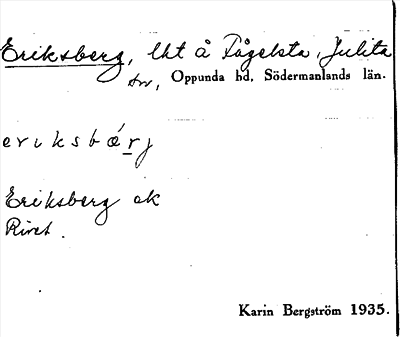 Eriksberg, lht å Fågelsta, Julita
sn, Oppunda hd, Södermanlands län.
eriksbærj
Eriksberg ek
Rivet.
Karin Bergström 1935.